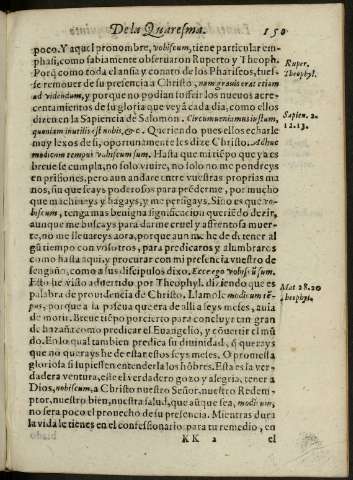 De la Quaresma. 150
poco. Y aquel pronombre, vobiscum, tiene particular em-
phasi, como sabiamente observaron Ruperto y Theoph.
Porq̃ como toda el ansia y conato de los Phariseos, fues-
se remouer de su presencia a Christo, nam grauis erat etiam
ad videndum, y porque no podian suffrir los nueuos acre-
centamientos de su gloria que veyã cada dia, como ellos
dizen en la Sapiencia de Salomon. Circumueniamus iustum,
quoniam inutilis est nobis, &c. Queriendo pues ellos echarle
muy lexos de si, oportunamente les dize Christo. Adhuc
modicum tempus vobiscum sum. Hasta que mi tiẽpo que ya es
breue se cumpla, no solo viuire, no solo no me pondreys
en prisiones, pero aun andare entre vuestras proprias ma
nos, sin que seays poderosos para prẽderme, por mucho
que machineys y hagays, y me persigays. Sino es que vo-
biscum, tenga mas benigna significacion queriẽdo dezir,
aunque me buscays para darme cruel y affrentosa muer-
te, no me lleuareys aora, porque aun me he de detener al
gũ tiempo con vosotros, para predicaros y alumbraros
como hasta aqui, y procurar con mi presencia vuestro de
sengaño, como a sus discipulos dixo, Ecce ego vobiscũ sum.
Esto he visto aduertido por Theophyl. diziendo que es
palabra de prouidencia de Christo. Llamole modicum tẽ-
pus, porque a la pascua que era de alli a seys meses, auia
de morir. Breue tiẽpo por cierto para concluyr tan gran
de hazaña como predicar el Euangelio, y cõuertir el mũ
do. En lo qual tambien predica su diuinidad, q̃ querays
que no querays he de estar estos seys meses. O promessa
gloriosa si supiessen entenderla los hõbres. Esta es la ver-
dadera ventura, este el verdadero gozo y alegria, tener a
Dios, nobiscum, a Christo nuestro Señor, nuestro Redem-
ptor, nuestro bien, nuestra salud, que aũque sea, modicum,
no sera poco el prouecho de su presencia. Mientras dura
la vida le tienes en el confessionario para tu remedio, en
KK 2 el
Ruper.
Theophyl.
Sapien. 2.
12.13.
Mat 28.20
Theophyl.